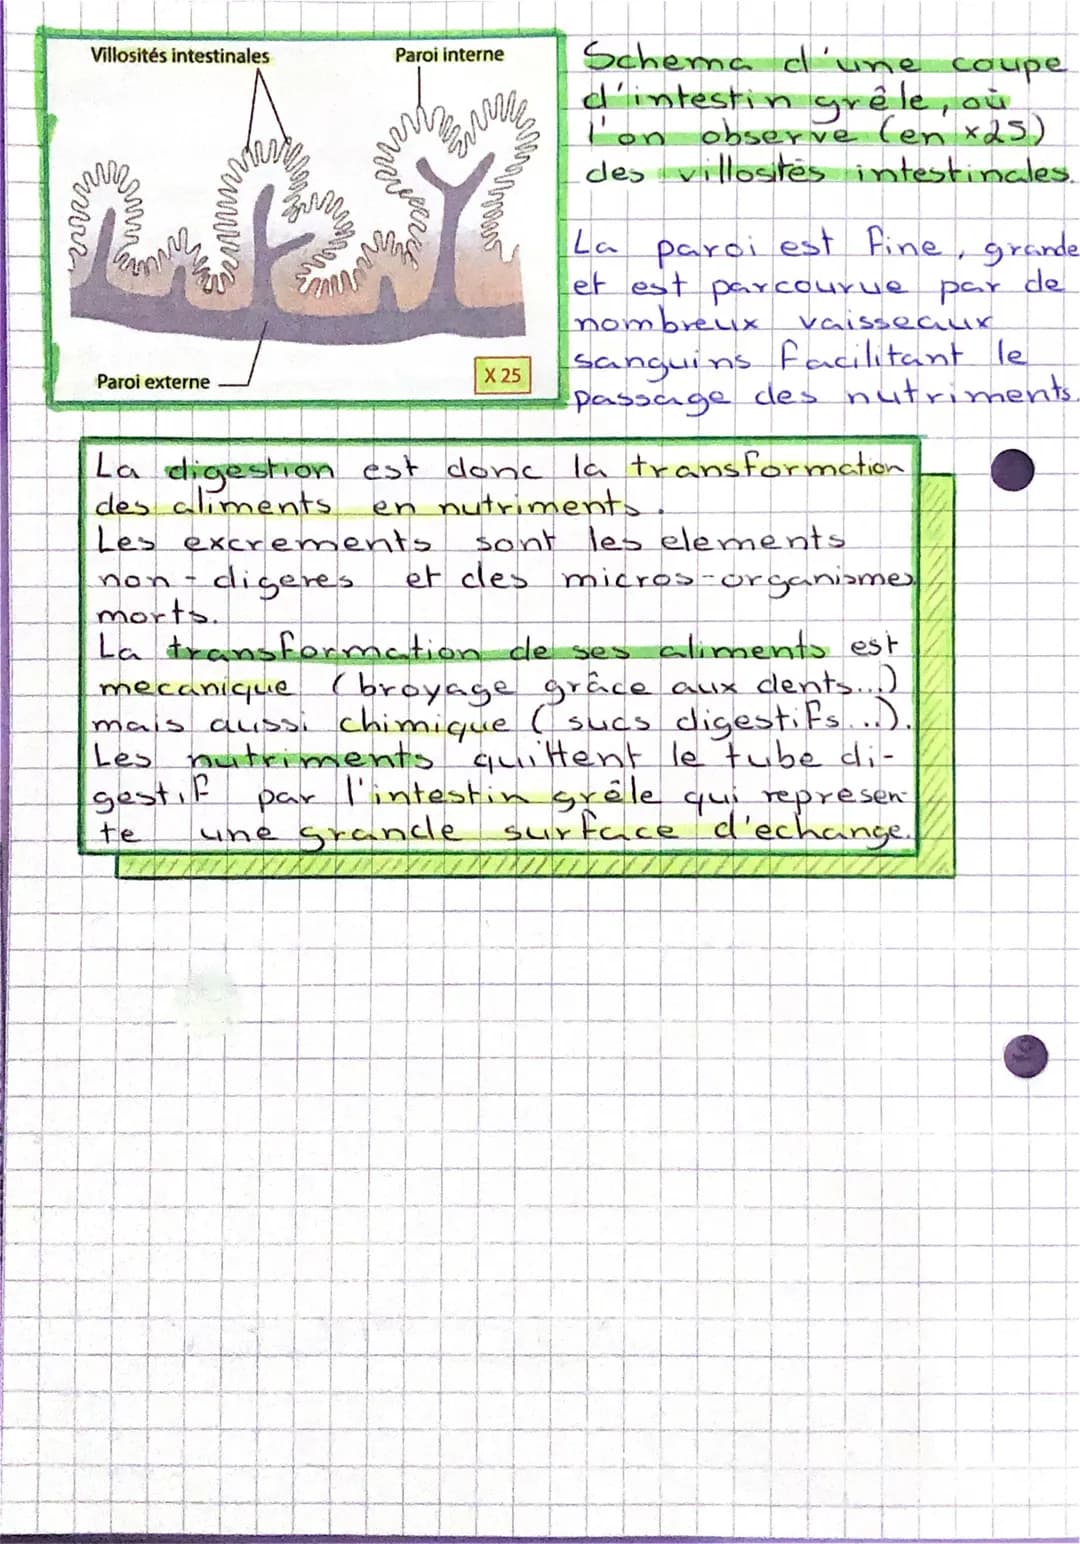 Villosités intestinales
Paroi interne
Paroi externe
X 25
Schema d'une coupe
d'intestin grêle, où
l'on observe (en x25)
des villosités intestinales.
La paroi est fine, grande
et est parcourue par de
nombreux vaisseaux
sanguins facilitant le
passage des nutriments.
La digestion est donc la transformation
des aliments en nutriments.
Les excrements sont les elements
non-digeres et des micros-organismes
morts.
La transformation de ses aliments est
mecanique (broyage grâce aux dents...)
mais aussi chimique (sucs digestifs...).
Les nutriments quittent le tube di-
gestif par l'intestin grêle qui represen-
te une grande surface d'echange.